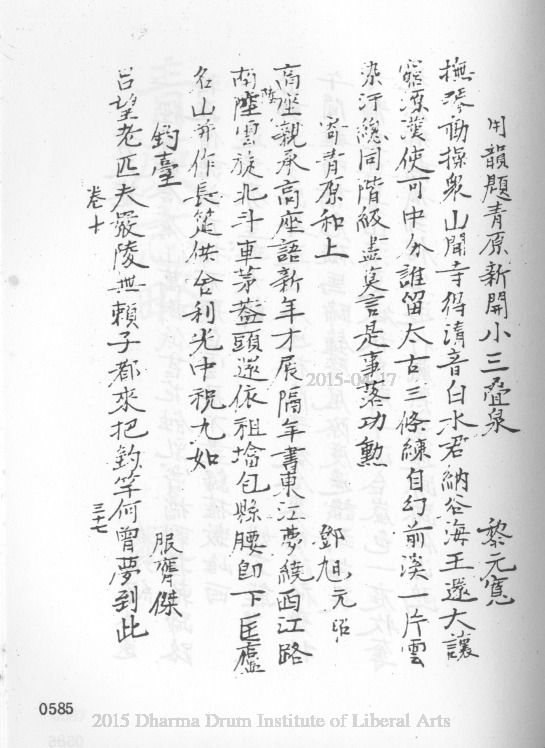 用韻題青原新開小三疊泉 黎元寬
撫琴動操衆山聞寺得清音白水君納谷海王還大讓
窮源漢使可中分誰留太古三條練自幻前溪一片雲
染汙總同階級盡莫言是事落功勳
寄青原和上 鄧旭元昭
高座親承高座語新年才展隔年書東江夢繞西江路
南陸雲旋北斗車茅蓋頭還依祖塔包縣腰卽下匡廬
名山並作長筵供舍利光中祝九如
釣臺 服膺傑
呂望老匹夫嚴陵無賴子都來把釣竿何曾夢到此
卷十 三十七
0585
2015-04-17
2015 Dharma Drum Institute of Liberal Arts